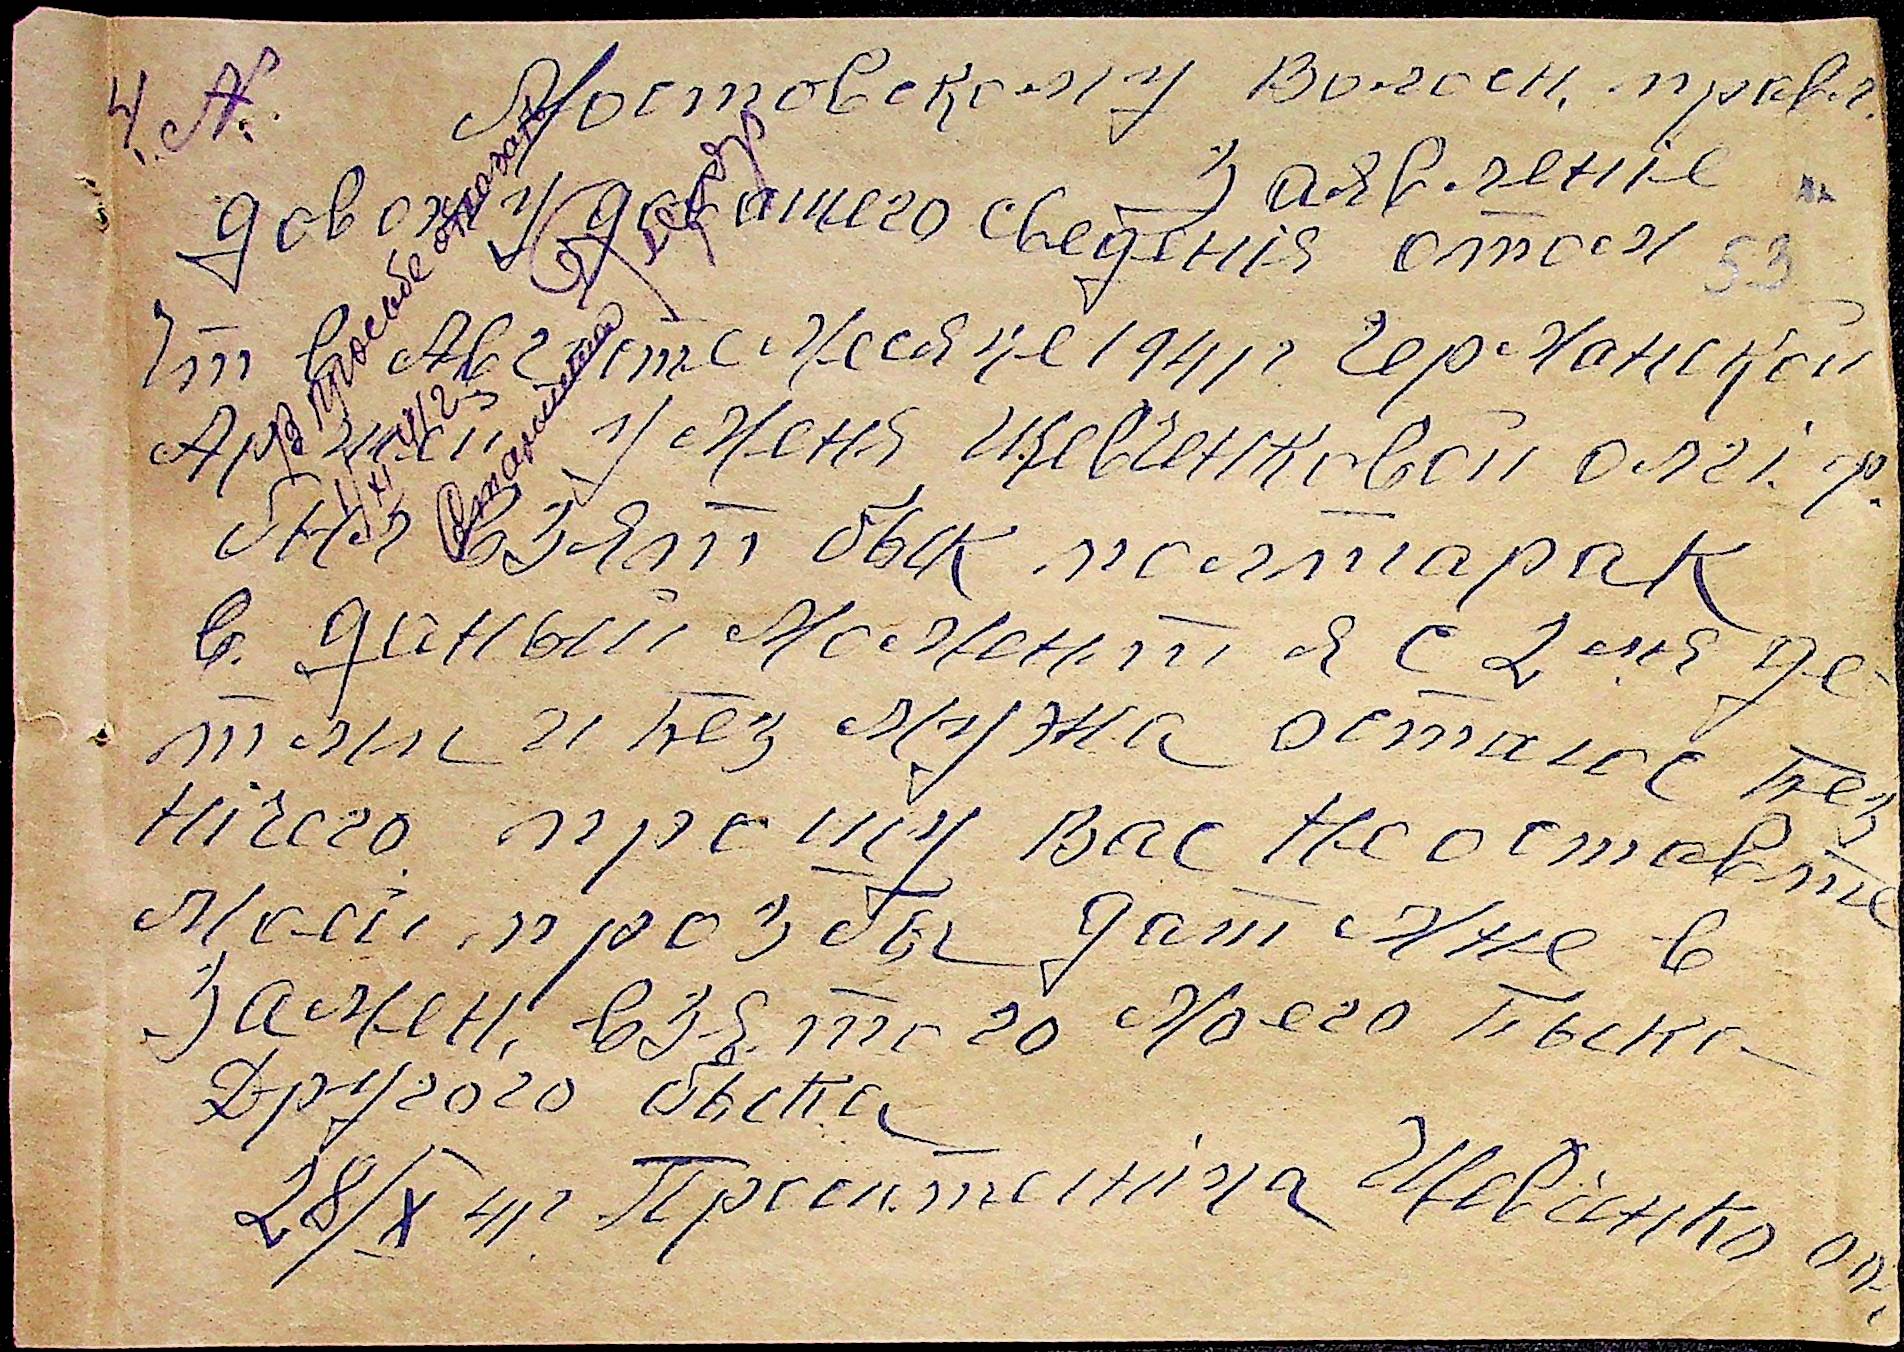 Ч. А.
Мостовскому Волосн. правл.
Заявленіе
довожу до вашего сведенія о том
53
Чт в Августе месяце 1941 г. Германской
Армией у меня Шевченковой Олгі. Ф.
был взят бык полтарак
в. даный момент я с 2 мя де
тями и без мужа остаюс без
нічего. прошу Вас не оставте
моей прозбы дат мне в
замен, взятого моего быка
Другого быка
28/X 41 г. Просителніца Шевченко Ол.
В просьбе отказать
1/XI 41 г.
Старшина